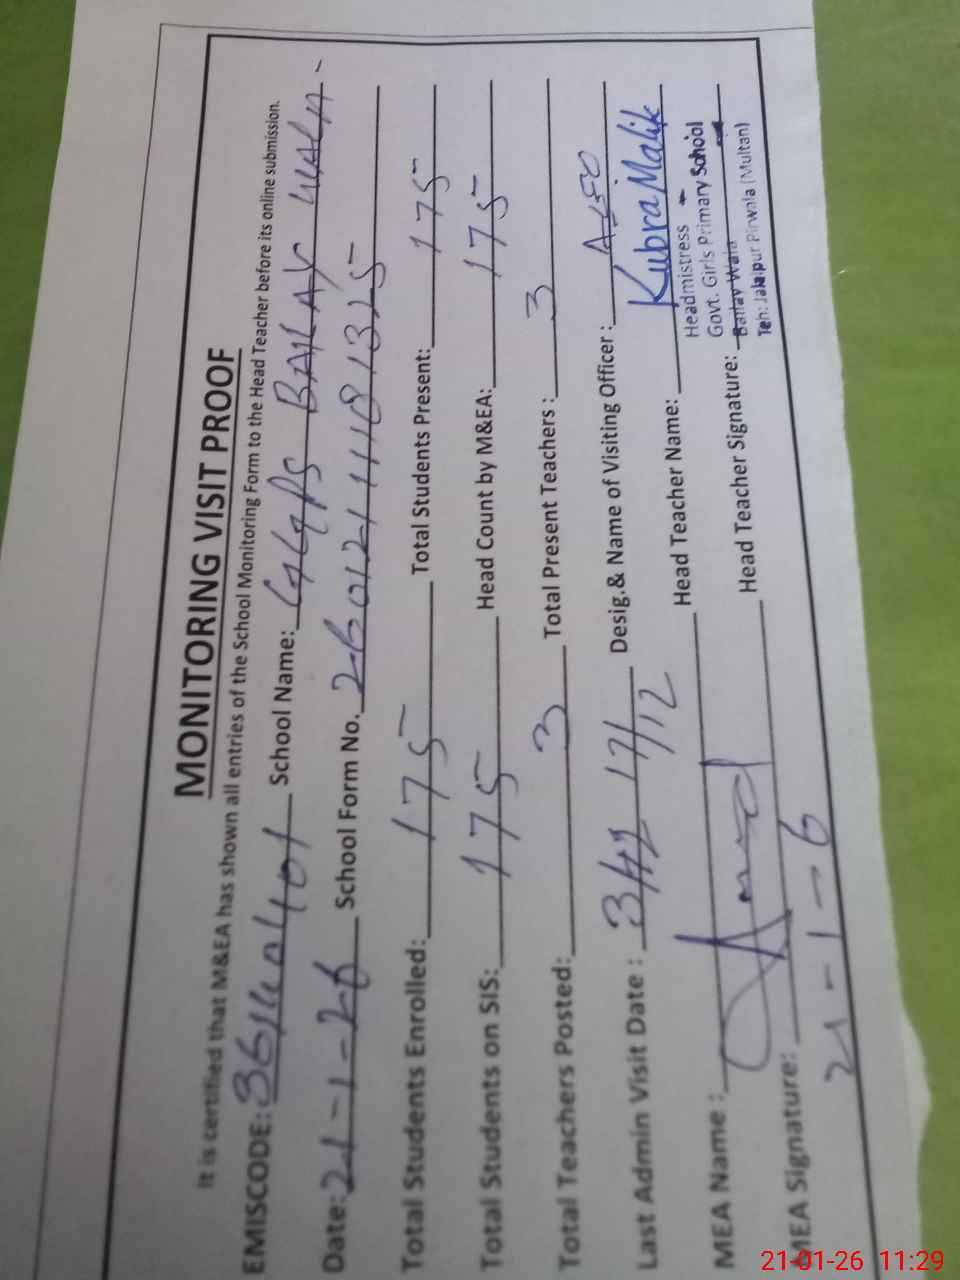 MONITORING VISIT PROOF
It is certified that M&EA has shown all entries of the School Monitoring Form to the Head Teacher before its online submission.
EMISCODE: School Name: GGPS BAILAY WALA
Date: 21-1-26 School Form No.
Total Students Enrolled: 175 Total Students Present: 175
Total Students on SIS: 175 Head Count by M&EA: 175
Total Teachers Posted: 3 Total Present Teachers : 3
Last Admin Visit Date : 17/12 Desig.& Name of Visiting Officer : AEO
MEA Name : Head Teacher Name: Kubra Malik
MEA Signature: Head Teacher Signature:
Headmistress
Govt. Girls Primary School
Bailay Wala
Teh: Jalalpur Pirwala (Multan)
21-1-6
21-01-26 11:29